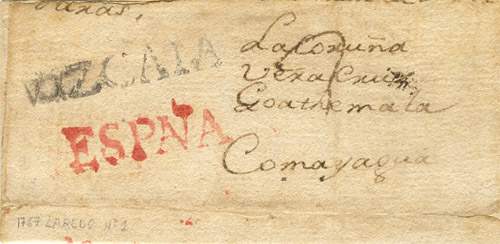 VIZCAIA
ESPÑA
La Coruña
Vera Cruz
Goathemala
Comayagua
1767 LAREDO Nº 1